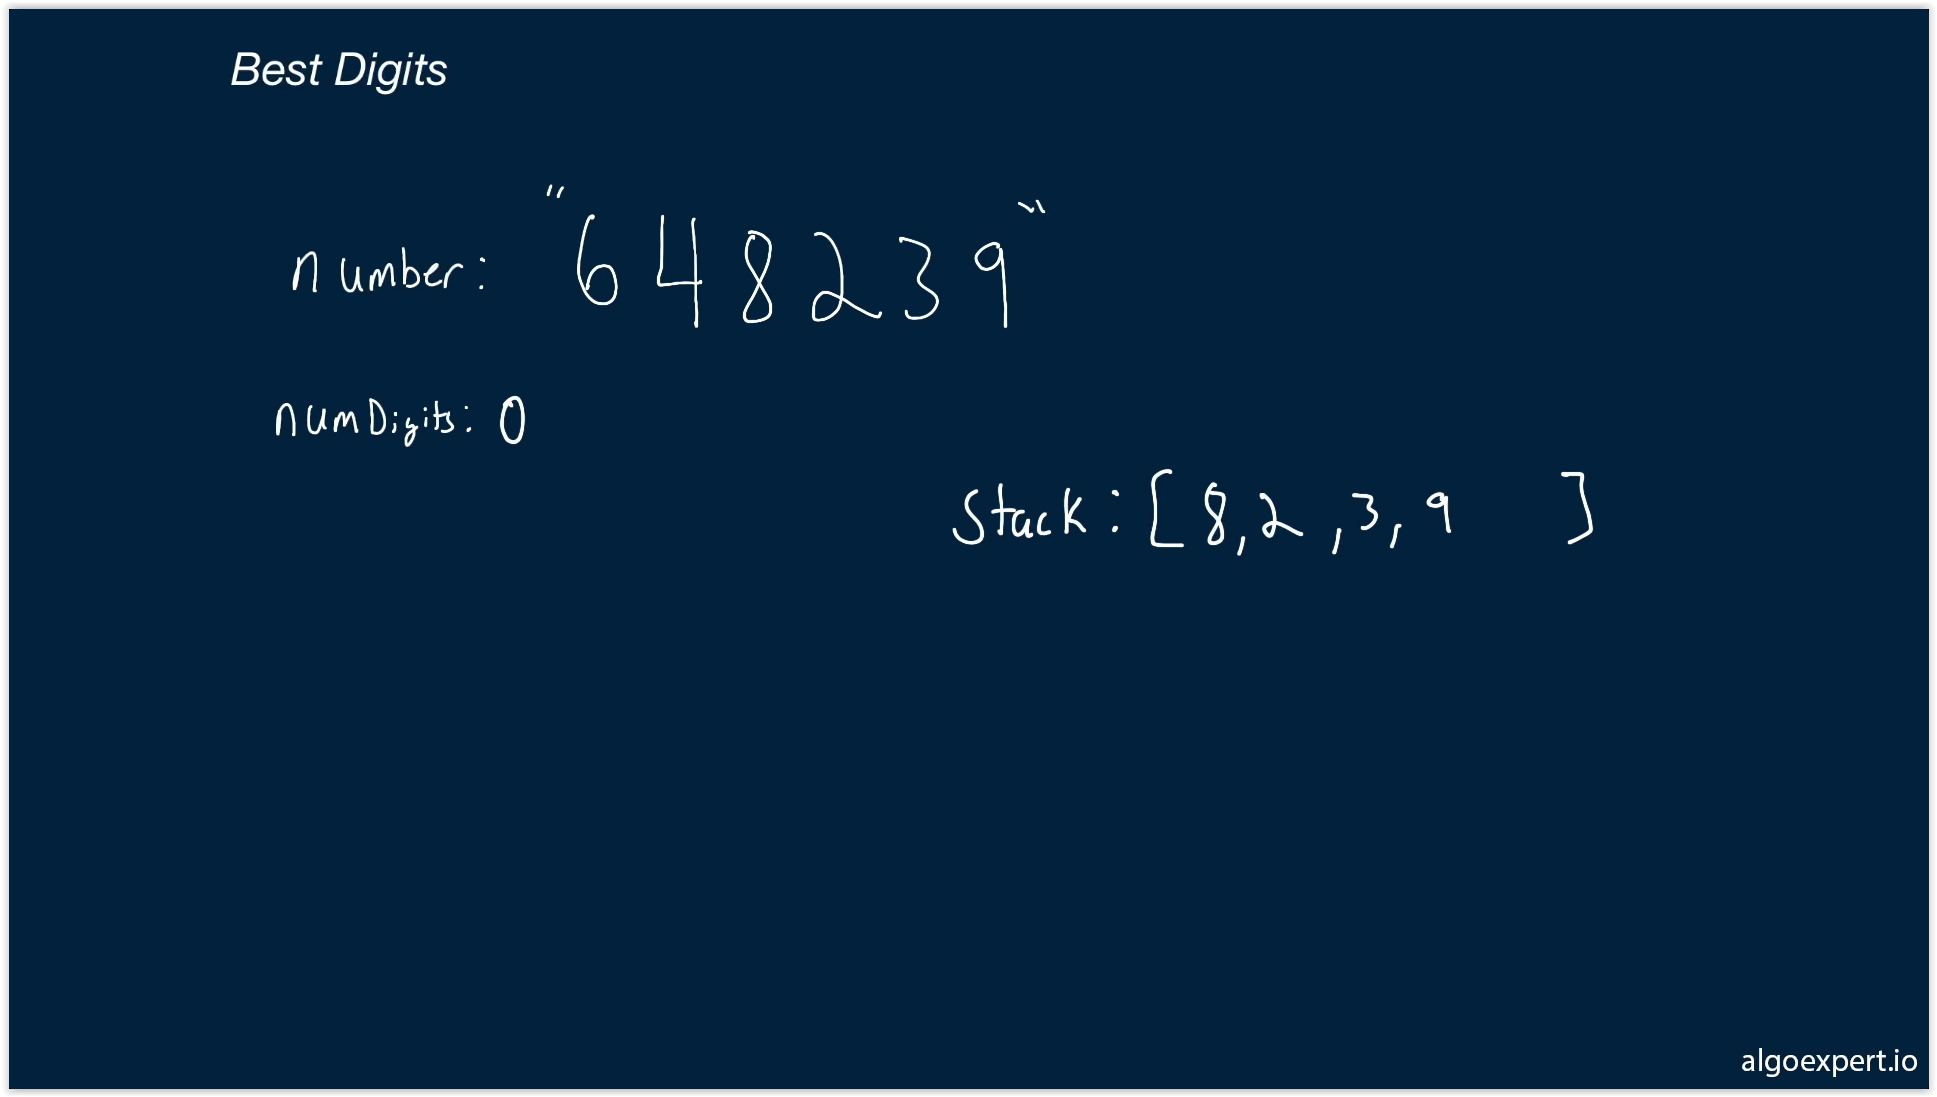 Best Digits
number: "648239"
numDigits: 0
Stack: [8,2,3,9 ]
algoexpert.io